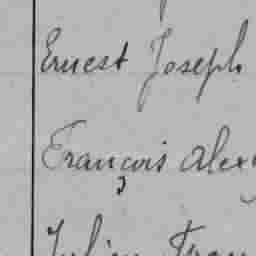 Ernest Joseph
François Alex
Julien Fran